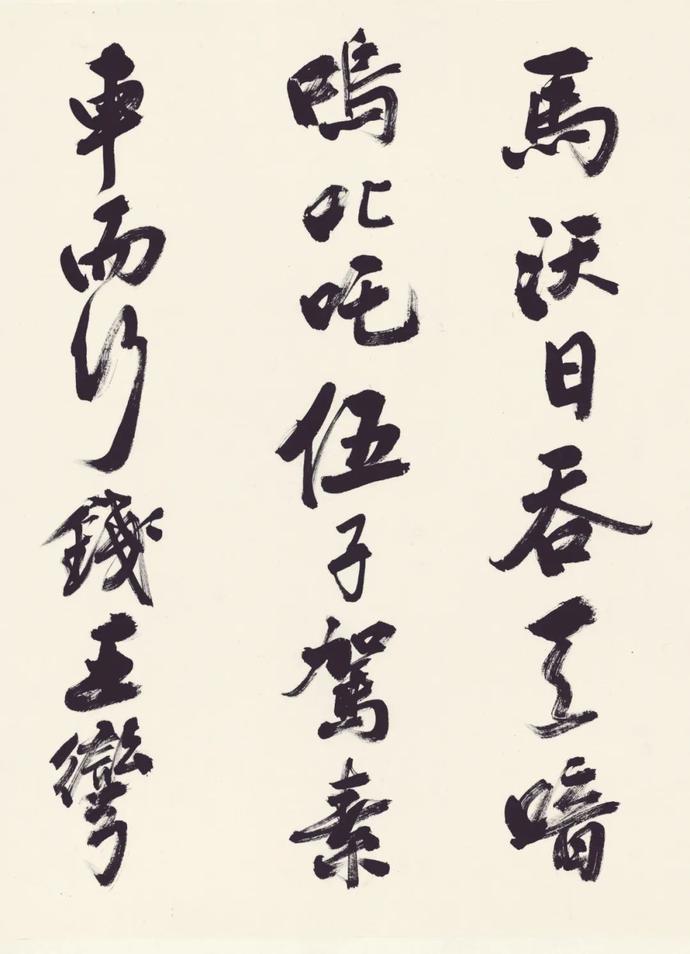 馬沃日吞天喑
嗚叱吒伍子駕素
車而行錢王彎